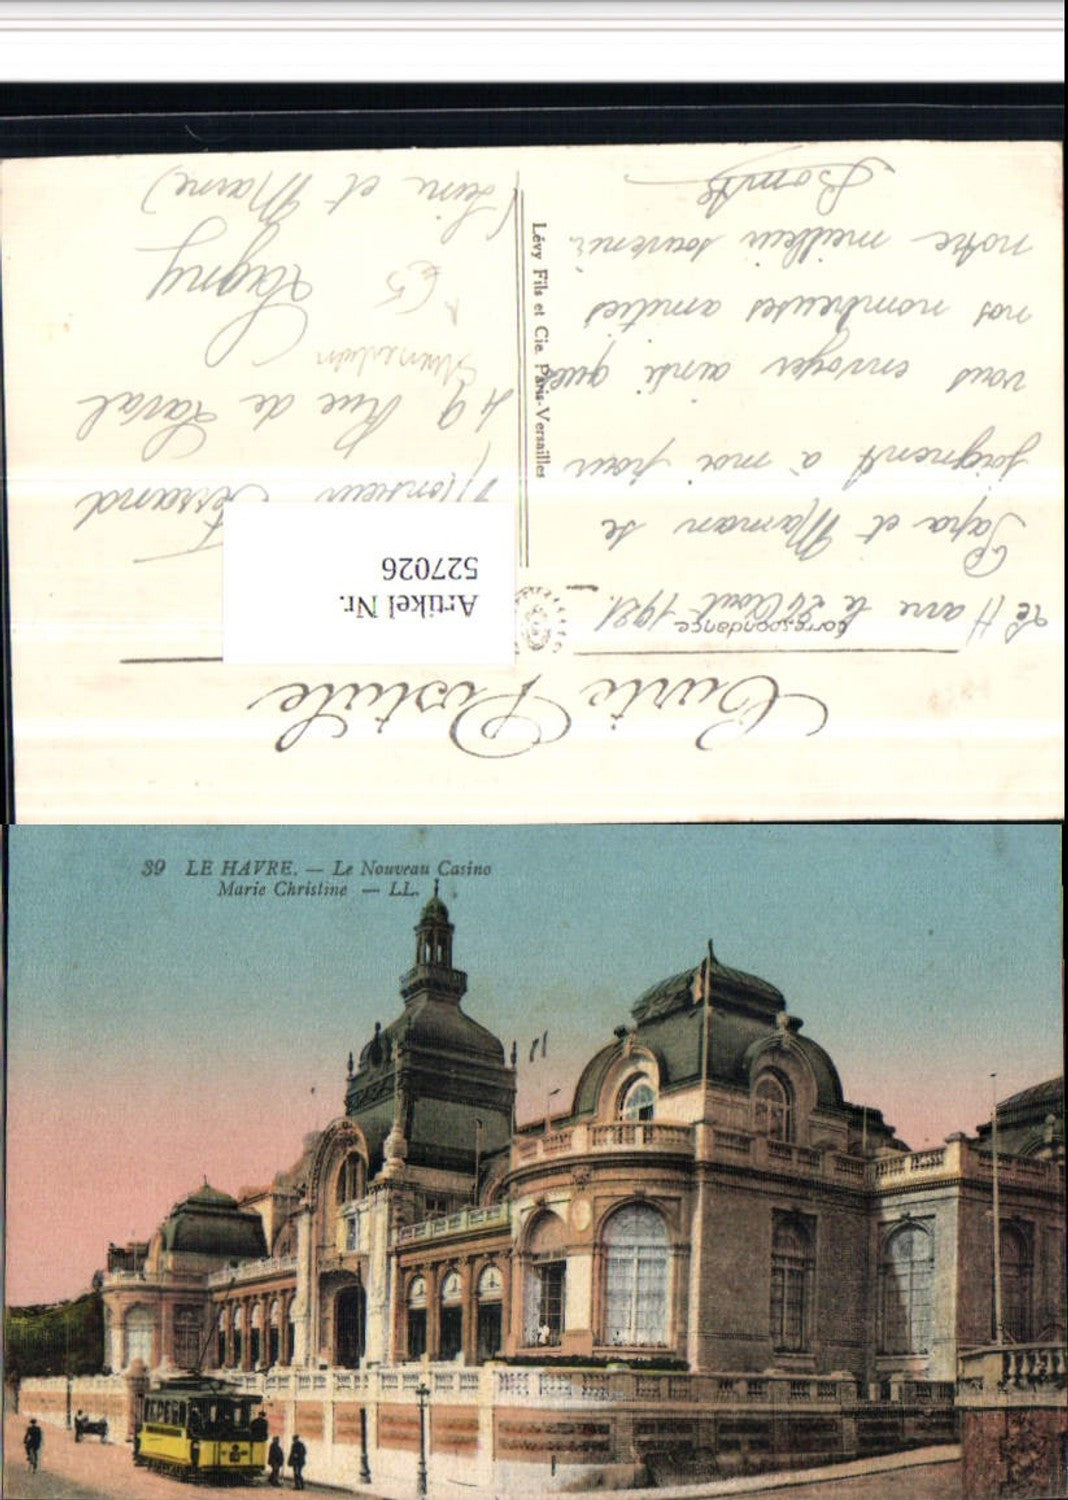 Carte Postale
Correspondance
Le Havre le 24 Août 1921.
Papa et Maman se
joignent à moi pour
vous envoyer ainsi que
nos nombreuses amitiés
notre meilleur souvenir
Lévy Fils et Cie. Paris-Versailles
Artikel Nr.
527026
Monsieur Ferrand
49 Rue de Laval
Lagny
(Seine et Marne)
€5
39 LE HAVRE. — Le Nouveau Casino
Marie Christine — LL.